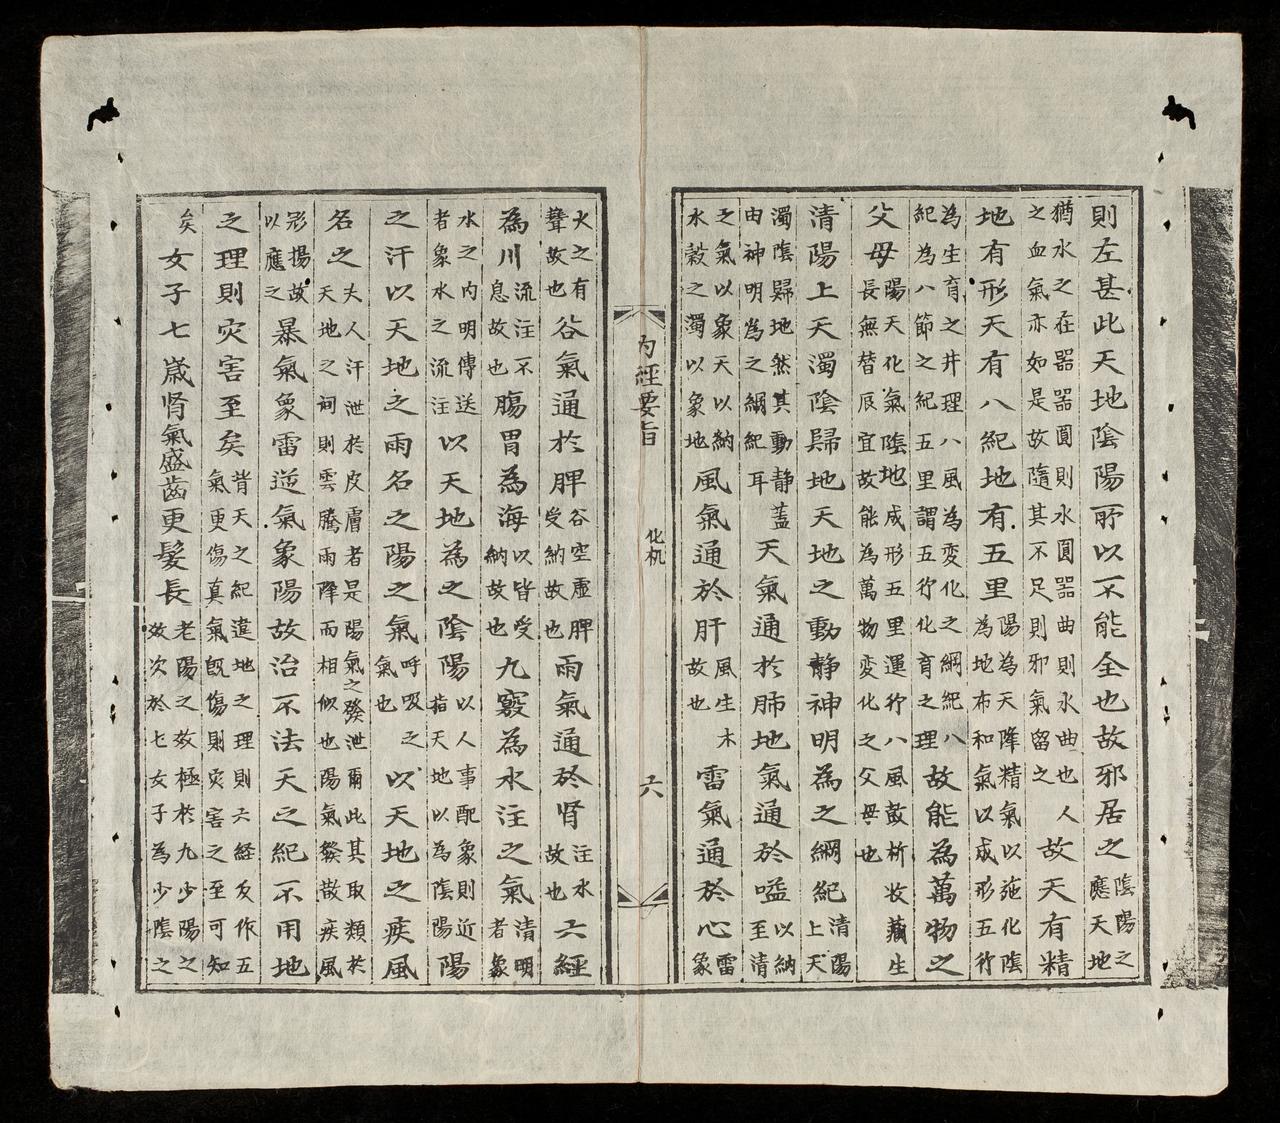 則左甚此天地陰陽所以不能全也故邪居之陰陽之應天地
猶水之在器器圓則水圓器曲則水曲也人之血氣亦如是故隨其不足則邪氣留之故天有精
地有形天有八紀地有五里陽為天降精氣以施化陰為地布和氣以成形五行
為生育之井理八風為変化之綱紀八紀為八節之紀五里謂五行化育之理故能為萬物之
父母陽天化氣陰地成形五里運行八風鼓析收藏生長無替辰宜故能為萬物変化之父母也
清陽上天濁陰歸地天地之動靜神明為之綱紀清陽上天
濁陰歸地然其動静蓋由神明為之綱紀耳天氣通於肺地氣通於嗌以納至清
之氣以象天以納水穀之濁以象地風氣通於肝風生木故也雷氣通於心雷象
内經要旨 化机 六
火之有聲故也谷氣通於脾谷空虛脾受納故也雨氣通於肾注水故也六經
為川流注不息故也腸胃為海以皆受納故也九竅為水注之氣清明者象
水之内明傳送者象水之流注以天地為之陰陽以人事配象則近指天地以為陰陽陽
之汗以天地之雨名之陽之氣呼吸之氣也以天地之疾風
名之夫人汗泄於皮膚者是陽氣之發泄爾此其取類於天地之祠則雲騰雨降而相似也陽氣發散疾風
形揚故以應之暴氣象雷逆氣象陽故治不法天之紀不用地
之理則灾害至矣背天之紀違地之理則六経反作五氣更傷真氣既傷則灾害之至可知
矣女子七歲肾氣盛齒更髮長老陽之数極於九少陽之数次於七女子為少陰之